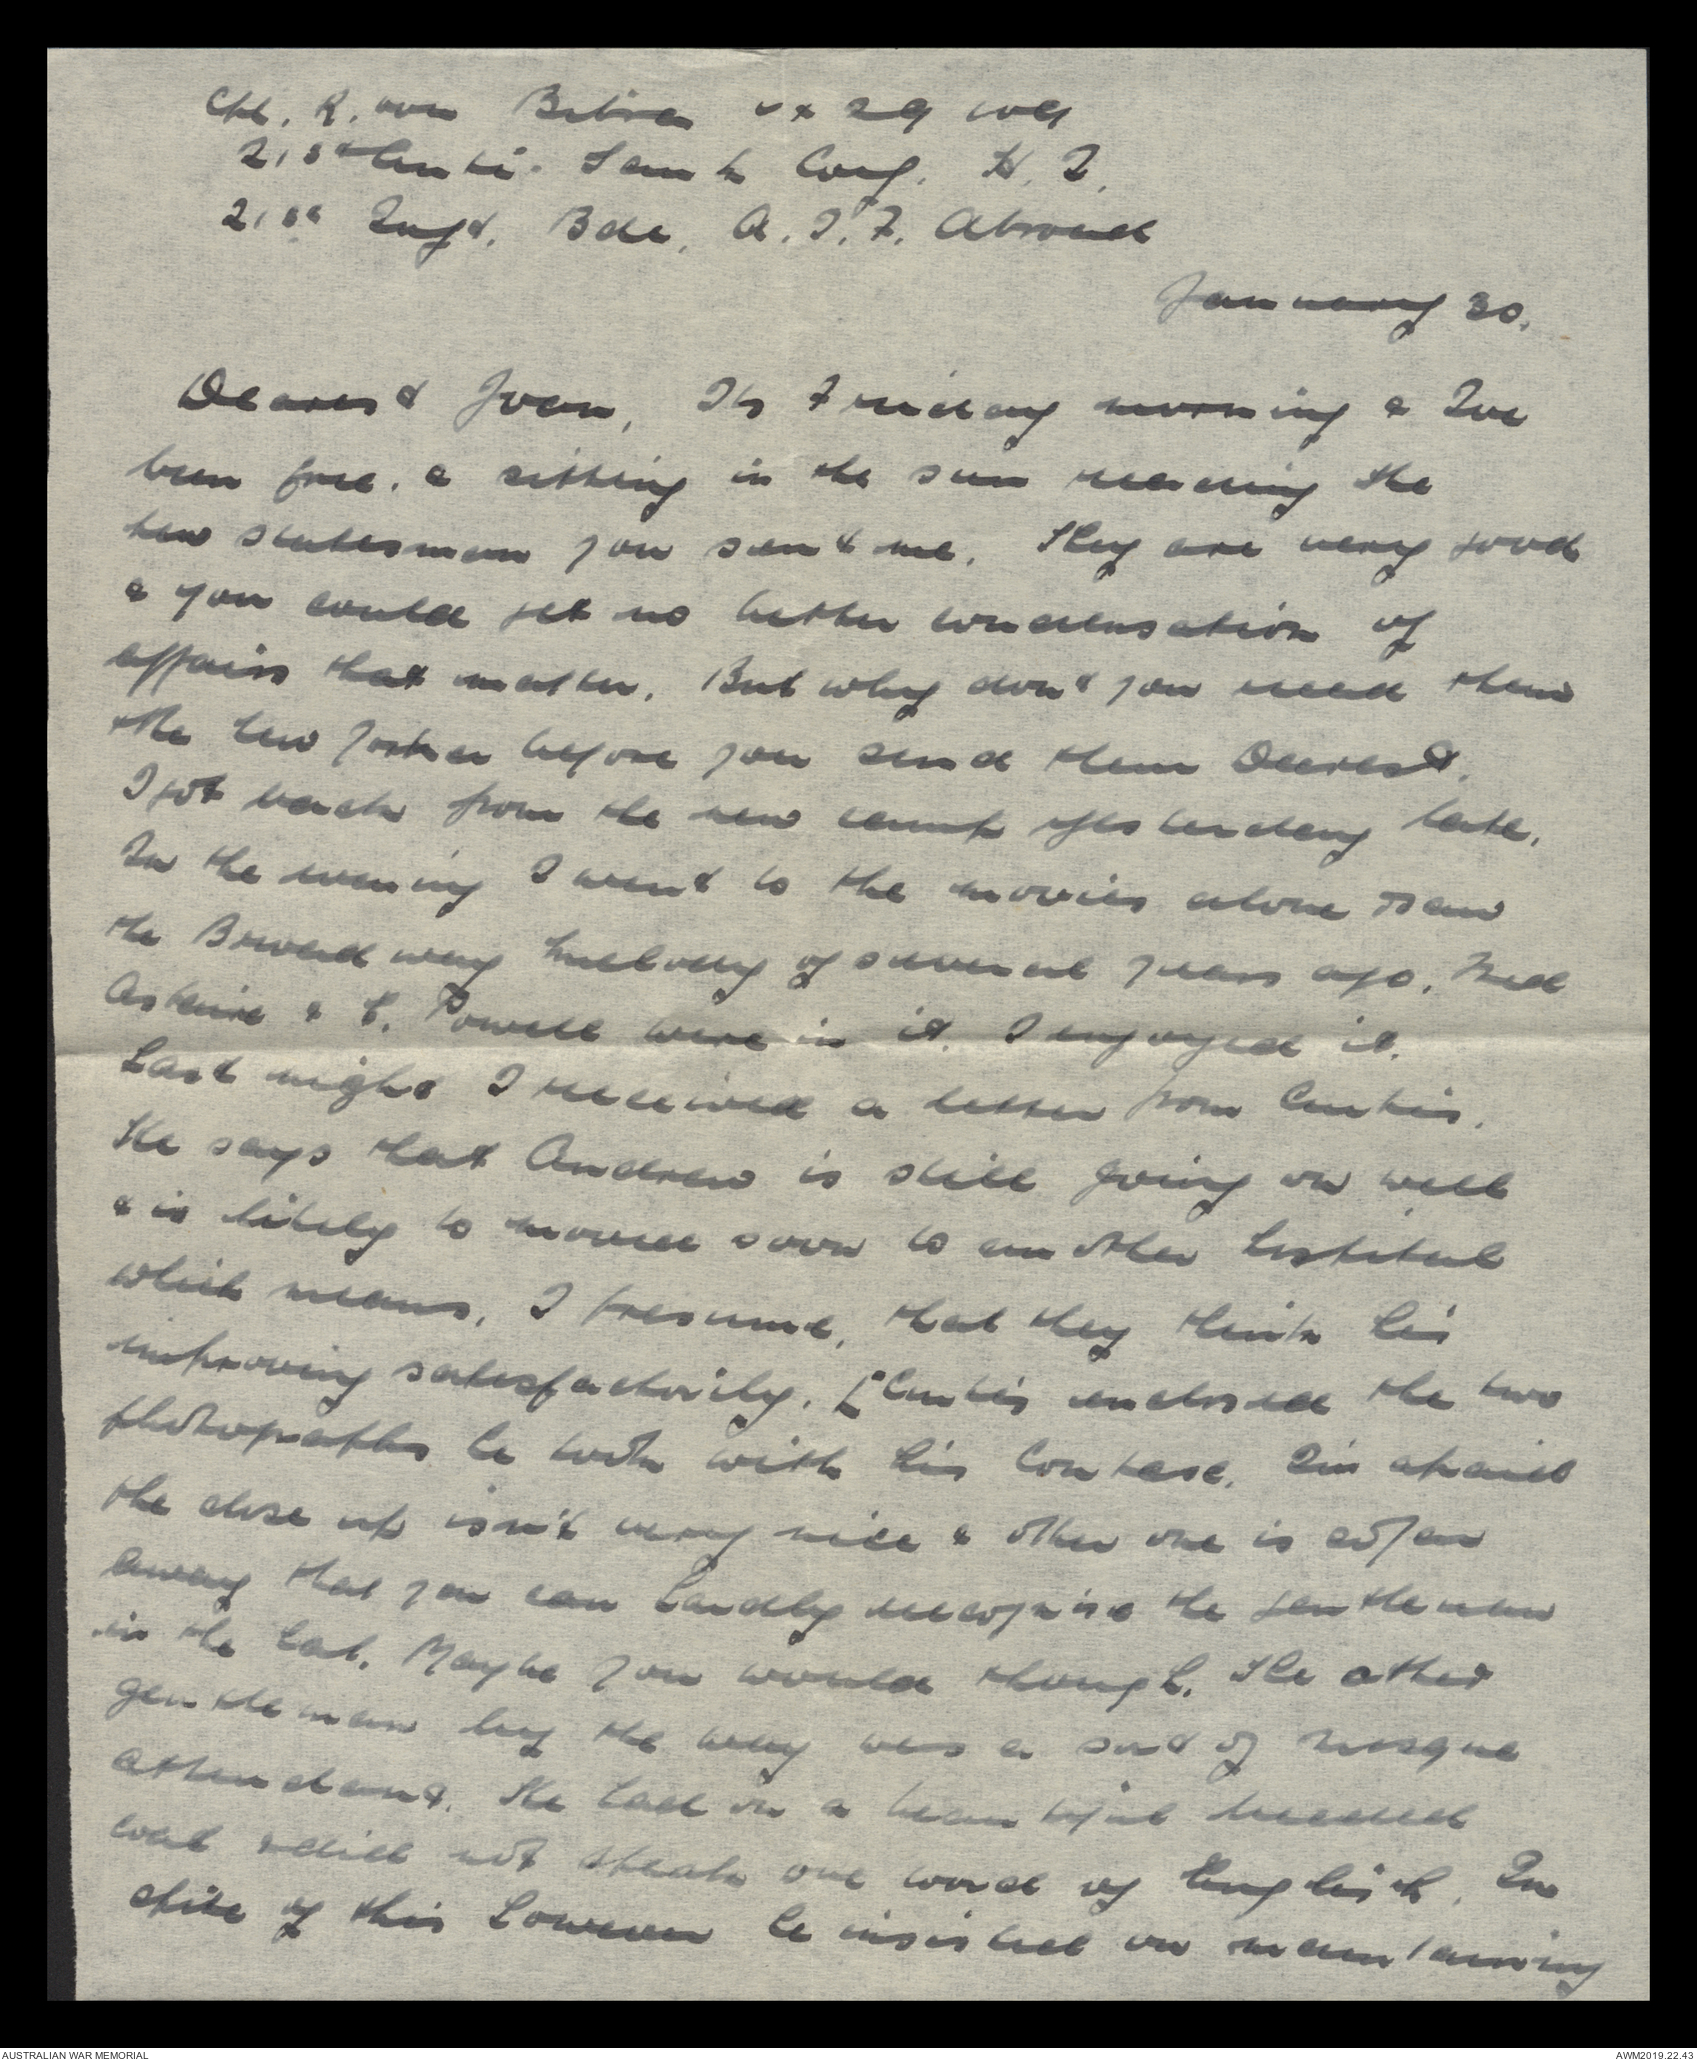 Cpl. R. von Bibra vx 29 
21st Anti. Tank Coy. H.Q.
21st Inf. Bde. A.I.F. Abroad
January 30.
Dearest Joan, Its Friday morning & Ive
been free. & sitting in the sun reading the
new statesman you sent me. They are very good
& you could get no better condensation of
affairs that matter. But why don't you read them
the before you send them Dearest.
I got back from the new camp yesterday late.
In the evening I went to the movies alone & saw
the Broadway melody of several years ago. Fred
Astaire & E. Powell were in it. I enjoyed it.
Last night I received a letter from Curtis.
He says that Andrew is still going on well
& is likely to moved soon to another hospital
which means, I presume, that they think his
improving satisfactorily. [Curtis enclosed the two
photographs he took with his Contase. Im afraid
the close up isn't very nice & other one is so far
away that you can hardly recognise the gentleman
in the hat. Maybe you would though. The other
gentleman by the way was a sort of mosque
attendant. He had on a beautiful
coat & did not speak one word of English. In
spite of this however he insisted on maintaining
AUSTRALIAN WAR MEMORIAL
AWM2019.22.43